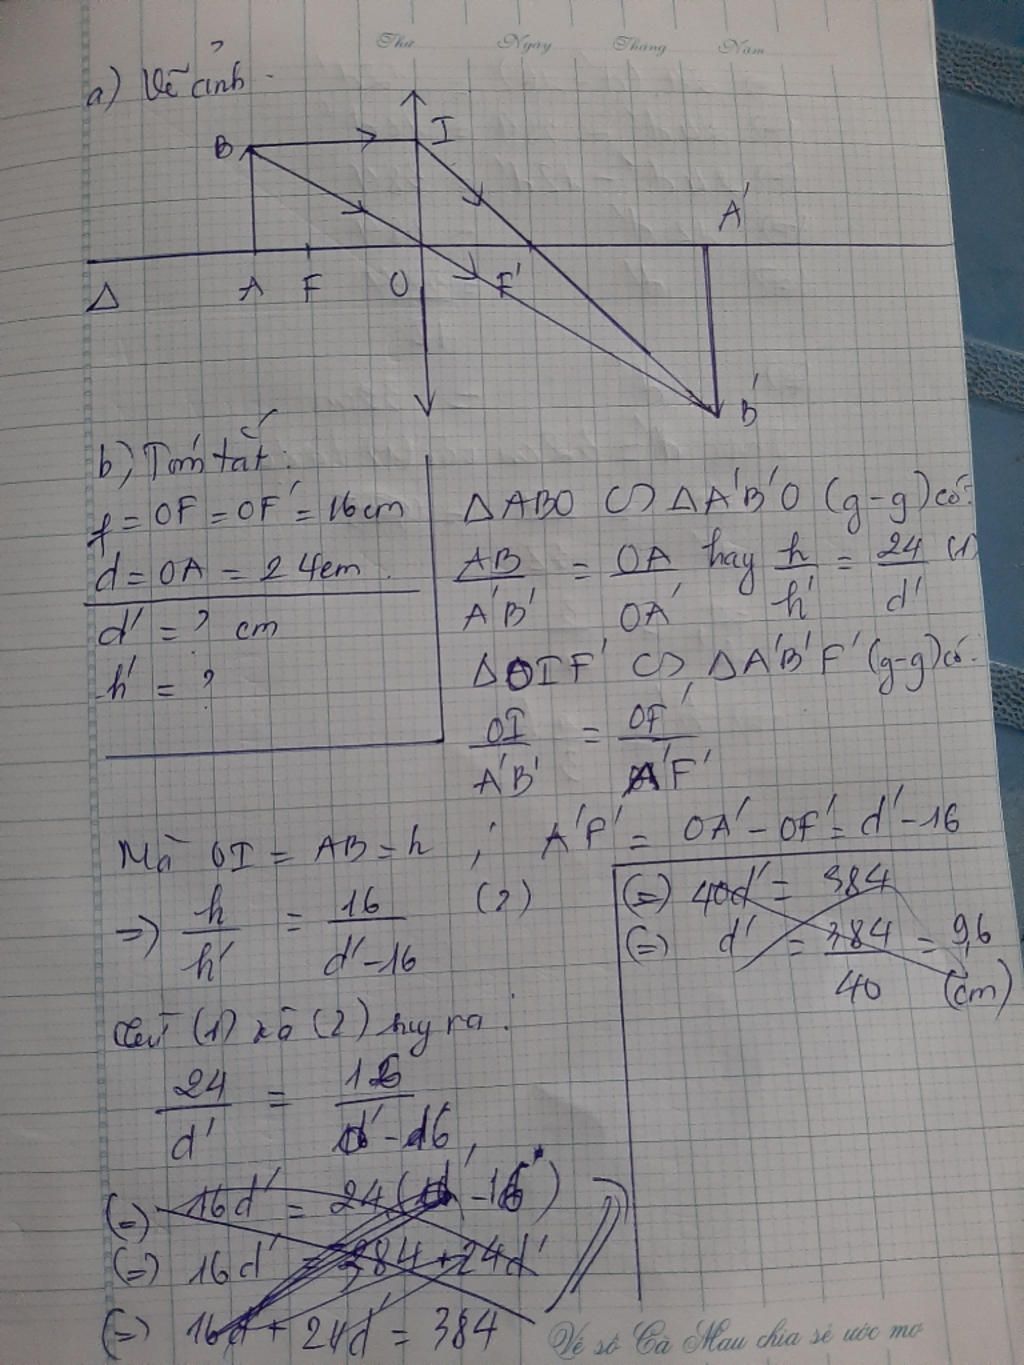 Thứ Ngày Tháng Năm
a) Vẽ ảnh.
B I
A'
Δ A F O F'
B'
b) Tóm tắt:
f = OF = OF' = 16cm
d = OA = 24cm.
d' = ? cm
h' = ?
ΔABO ∽ ΔA'B'O (g-g) có:
AB/A'B' = OA/OA' hay h/h' = 24/d' (1)
ΔOIF' ∽ ΔA'B'F' (g-g) có:
OI/A'B' = OF'/A'F'
Mà OI = AB = h ; A'F' = OA' - OF' = d' - 16
=) h/h' = 16/(d' - 16) (2)
(1) và (2) suy ra:
24/d' = 16/(d' - 16)
(=) 16d' = 24(d' - 16)
(=) 16d' = 384 + 24d'
(=) 16d' + 24d' = 384
(=) 40d' = 384
(=) d' = 384/40 = 9,6 (cm)
Vé số Cà Mau chia sẻ ước mơ